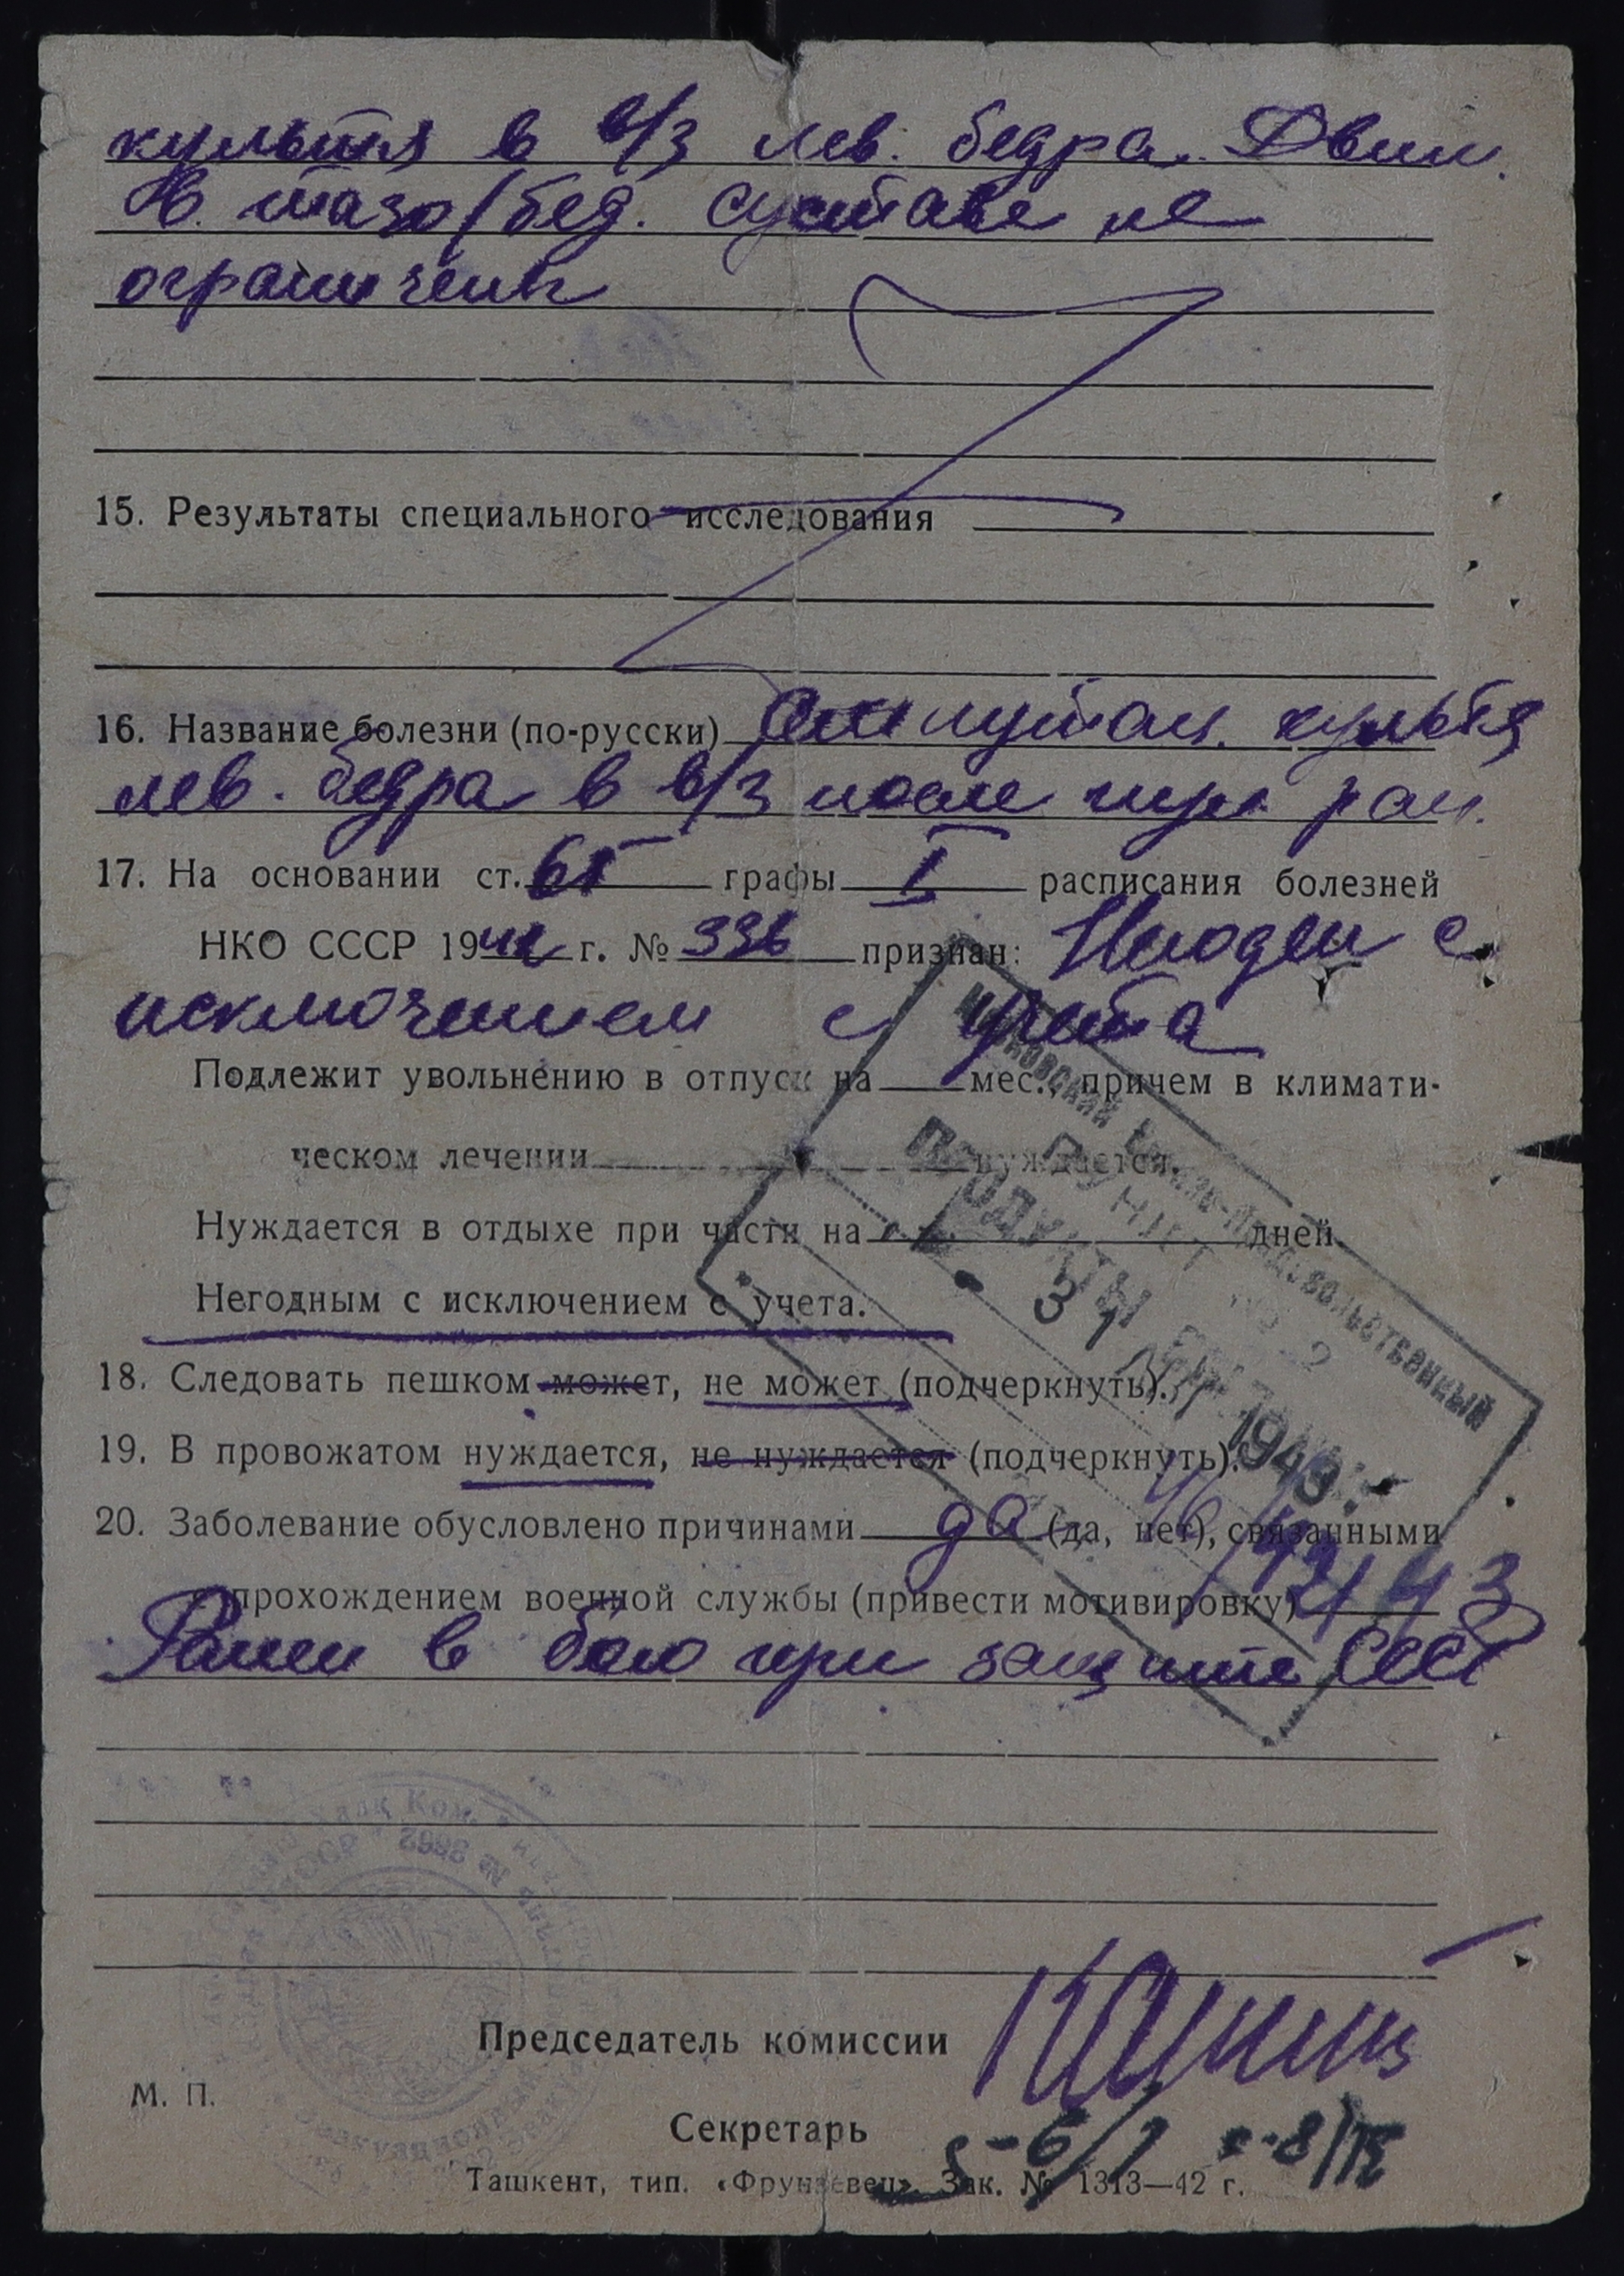 культя в в/з лев. бедра. Движ.
В тазо/бед. суставе не
ограничены
15. Результаты специального исследования
16. Название болезни (по-русски) Ампутац. культя
лев. бедра в в/з после пул. ран.
17. На основании ст. 65 графы I расписания болезней
НКО СССР 1942 г. № 336 признан: Негоден с
исключением с учета
Подлежит увольнению в отпуск на мес., причем в климати-
ческом лечении нуждается.
Нуждается в отдыхе при части на дней.
Негодным с исключением с учета.
18. Следовать пешком может, не может (подчеркнуть).
19. В провожатом нуждается, не нуждается (подчеркнуть).
20. Заболевание обусловлено причинами да (да, нет), связанными
с прохождением военной службы (привести мотивировку)
Ранен в бою при защите СССР
Продовольственный
ПУНКТ № 2
ПРОДУКТЫ
31
1943
№ 3862
Председатель комиссии
М. П.
Секретарь
Ташкент, тип. «Фрунзевец». Зак. № 1313—42 г.